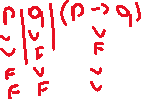 p | q | (p -> q)
V V V
V F F
F V V
F F V